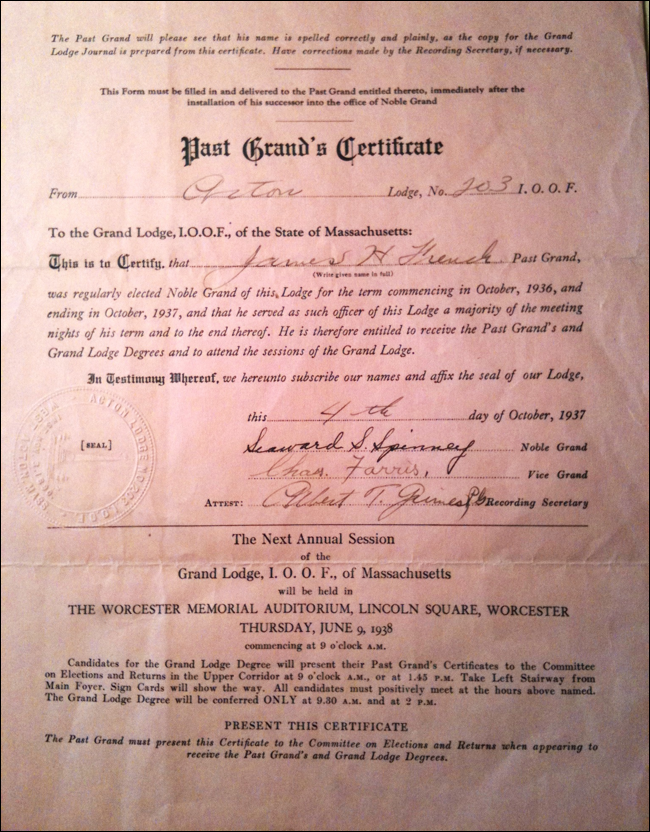 The Past Grand will please see that his name is spelled correctly and plainly, as the copy for the Grand
Lodge Journal is prepared from this certificate. Have corrections made by the Recording Secretary, if necessary.
This Form must be filled in and delivered to the Past Grand entitled thereto, immediately after the
installation of his successor into the office of Noble Grand
Past Grand's Certificate
From Acton Lodge, No. 203 I. O. O. F.
To the Grand Lodge, I.O.O.F., of the State of Massachusetts:
This is to Certify, that James H French Past Grand,
(Write given name in full)
was regularly elected Noble Grand of this Lodge for the term commencing in October, 1936, and
ending in October, 1937, and that he served as such officer of this Lodge a majority of the meeting
nights of his term and to the end thereof. He is therefore entitled to receive the Past Grand's and
Grand Lodge Degrees and to attend the sessions of the Grand Lodge.
In Testimony Whereof, we hereunto subscribe our names and affix the seal of our Lodge,
this 4th day of October, 1937
[SEAL]
ACTON LODGE
Seaward S. Spinney Noble Grand
Chas. Farris, Vice Grand
ATTEST: Albert T. Grimes P.G. Recording Secretary
The Next Annual Session
of the
Grand Lodge, I. O. O. F., of Massachusetts
will be held in
THE WORCESTER MEMORIAL AUDITORIUM, LINCOLN SQUARE, WORCESTER
THURSDAY, JUNE 9, 1938
commencing at 9 o'clock A.M.
Candidates for the Grand Lodge Degree will present their Past Grand's Certificates to the Committee
on Elections and Returns in the Upper Corridor at 9 o'clock A.M., or at 1.45 P.M. Take Left Stairway from
Main Foyer. Sign Cards will show the way. All candidates must positively meet at the hours above named.
The Grand Lodge Degree will be conferred ONLY at 9.30 A.M. and at 2 P.M.
PRESENT THIS CERTIFICATE
The Past Grand must present this Certificate to the Committee on Elections and Returns when appearing to
receive the Past Grand's and Grand Lodge Degrees.